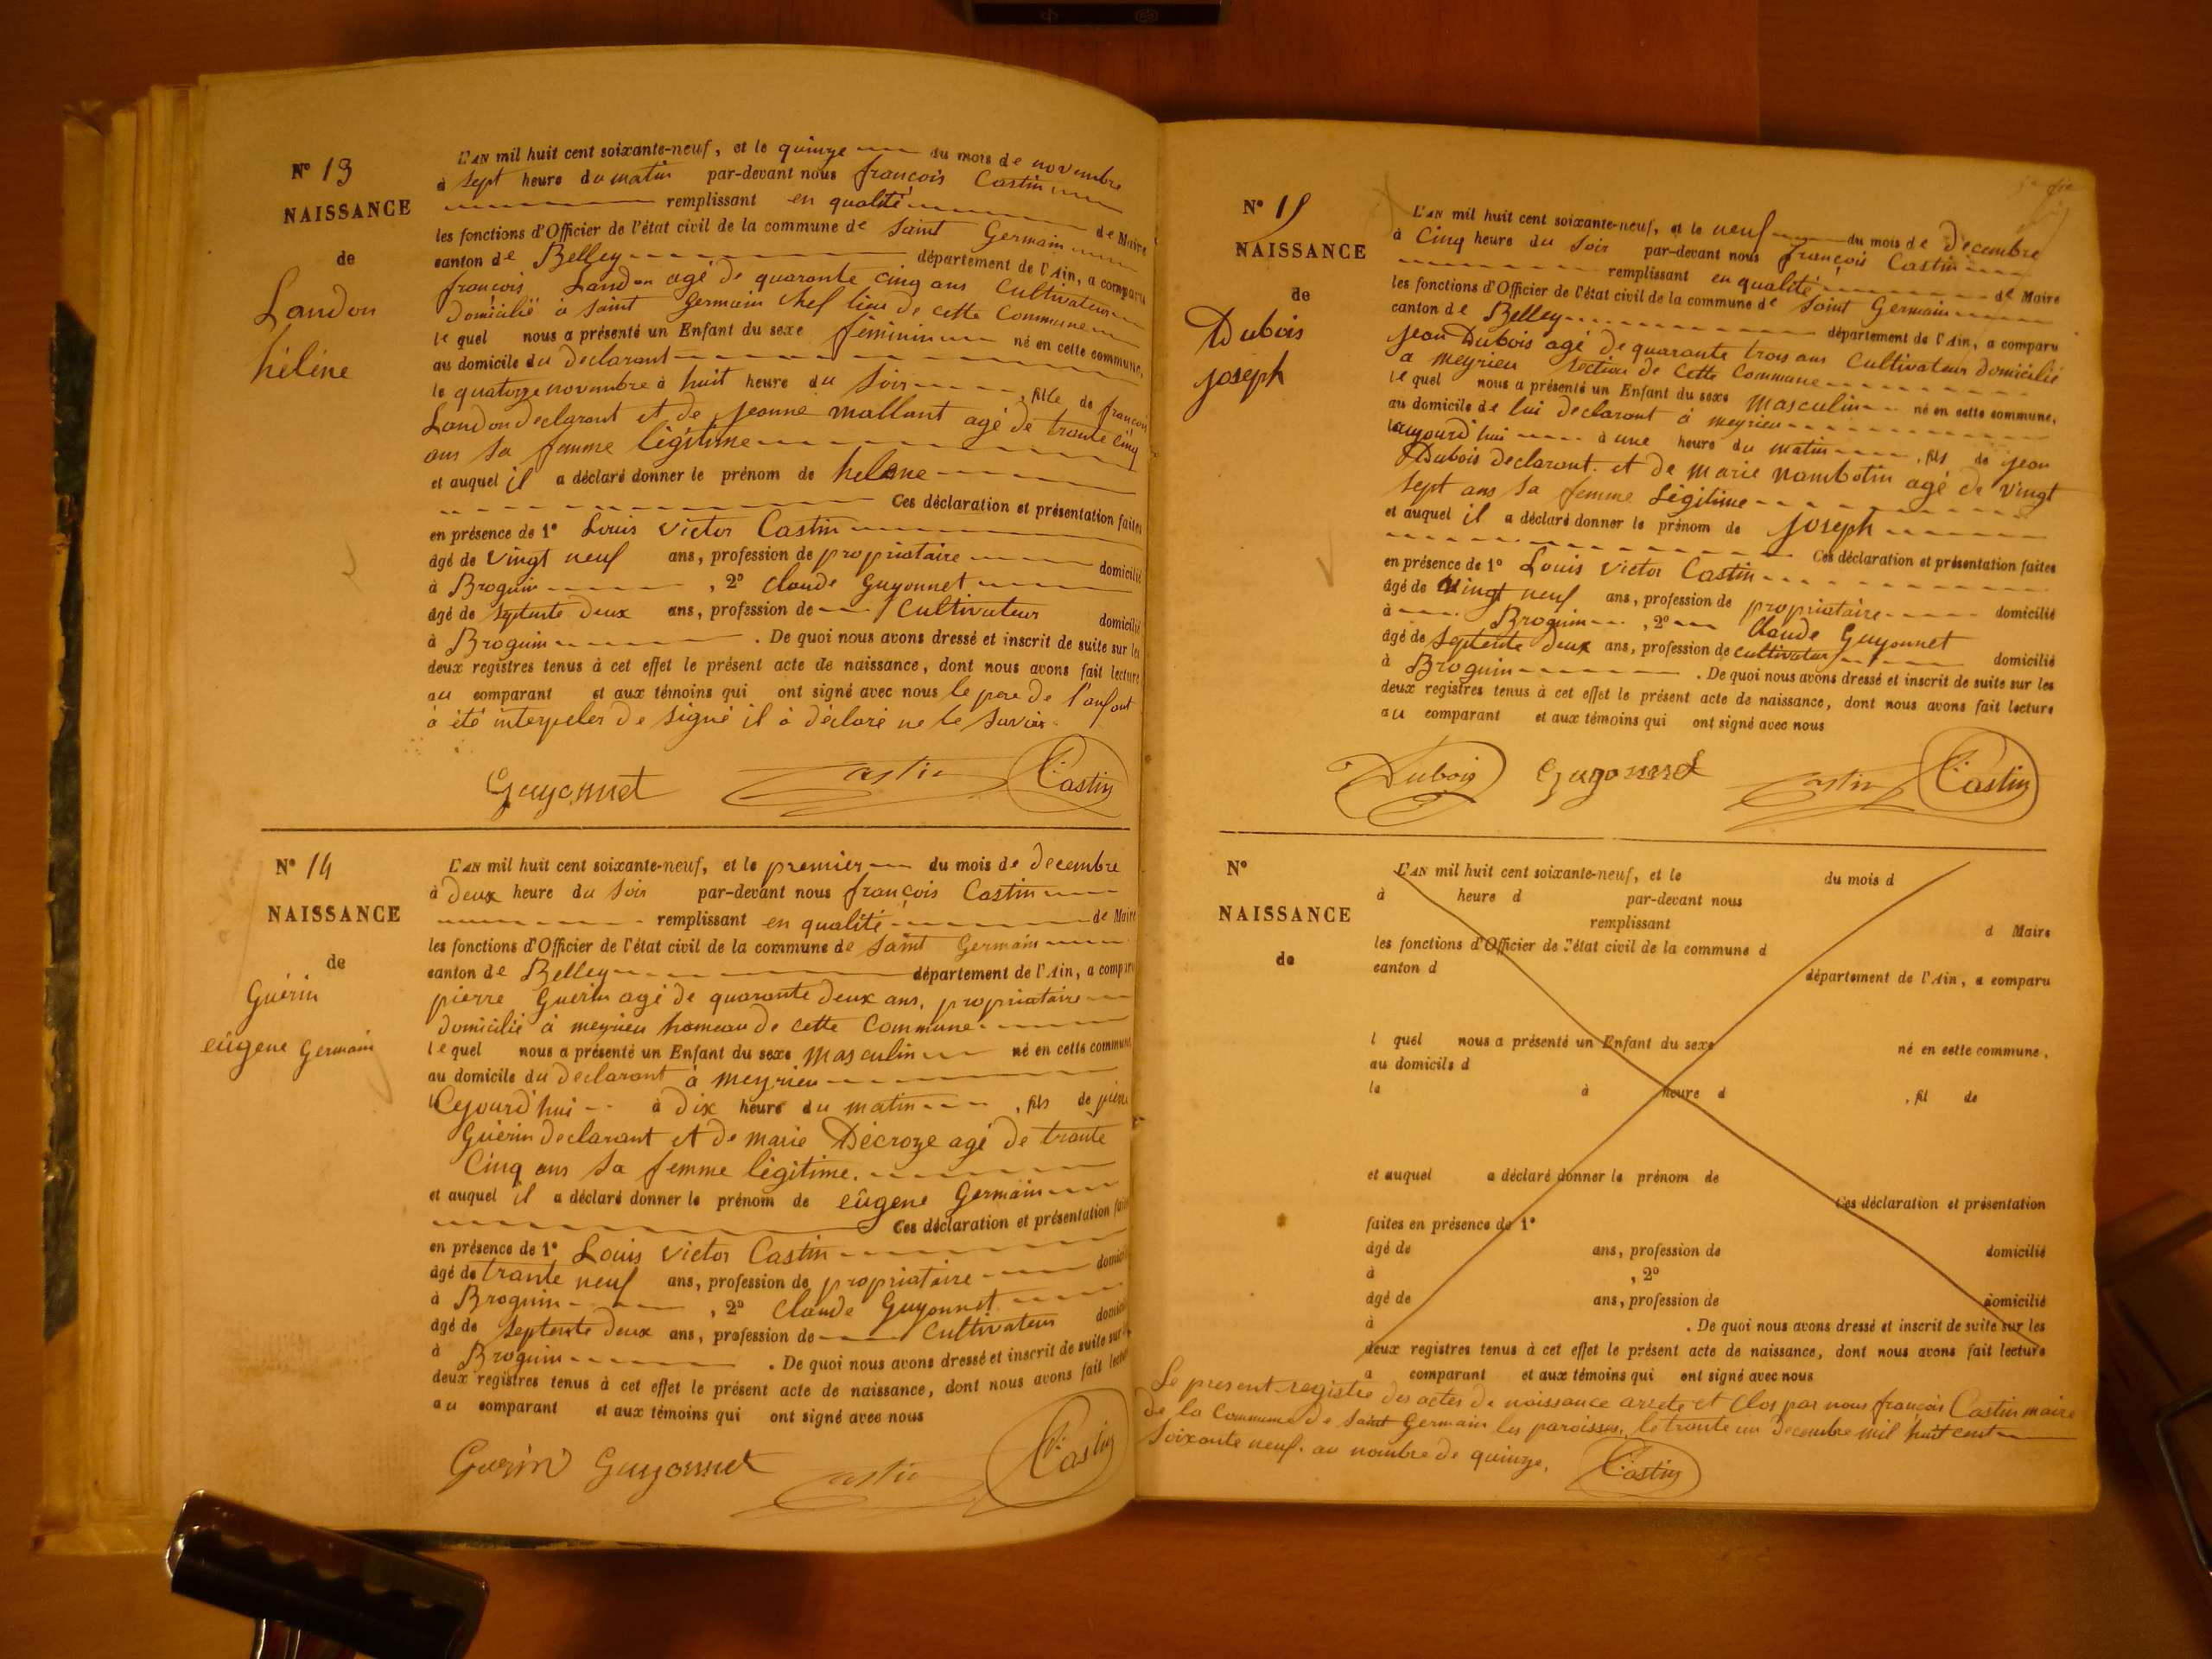 N° 13
NAISSANCE
de
Landon
hélène
L'AN mil huit cent soixante-neuf, et le quinze du mois de novembre
à sept heure du matin par-devant nous françois Castin
remplissant en qualité de Maire
les fonctions d'Officier de l'état civil de la commune de Saint Germain
canton de Belley département de l'Ain, a comparu
françois Landon agé de quarante cinq ans Cultivateur
domicilié à Saint Germain chef lieu de cette Commune
lequel nous a présenté un Enfant du sexe féminin né en cette commune,
au domicile du declarant
le quatorze novembre à huit heure du Soir , fille de françois
Landon declarant et de jeanne mallant agé de trante cinq
ans Sa femme légitime
et auquel il a déclaré donner le prénom de helene
Ces déclaration et présentation faites
en présence de 1° Louis Victor Castin
âgé de Vingt neuf ans, profession de propriataire domicilié
à Brognin , 2° Claude Guyonnet
âgé de septente deux ans, profession de Cultivateur domicilié
à Brognin . De quoi nous avons dressé et inscrit de suite sur les
deux registres tenus à cet effet le présent acte de naissance, dont nous avons fait lecture
au comparant et aux témoins qui ont signé avec nous le pere de l'anfant
à été interpeler de Signé il à déclaré ne le Savoir.
Guyonnet Castin Castin
N° 14
NAISSANCE
de
Guérin
eûgene Germain
L'AN mil huit cent soixante-neuf, et le premier du mois de decembre
à deux heure du Soir par-devant nous françois Castin
remplissant en qualité de Maire
les fonctions d'Officier de l'état civil de la commune de Saint Germain
canton de Belley département de l'Ain, a comparu
pierre Guérin agé de quarante deux ans, propriataire
domicilié à meyrieu hameau de cette Commune
lequel nous a présenté un Enfant du sexe masculin né en cette commune
au domicile du declarant à meyrieu
Cejourd'hui à dix heure du matin , fils de pierre
Guérin declarant et de marie Décroze agé de trante
Cinq ans Sa femme légitime.
et auquel il a déclaré donner le prénom de eûgene Germain
Ces déclaration et présentation faites
en présence de 1° Louis Victor Castin
âgé de trante neuf ans, profession de propriataire domicilié
à Brognin , 2° Claude Guyonnet
âgé de Septente deux ans, profession de Cultivateur domicilié
à Brognin . De quoi nous avons dressé et inscrit de suite sur les
deux registres tenus à cet effet le présent acte de naissance, dont nous avons fait lecture
au comparant et aux témoins qui ont signé avec nous
Guérin Guyonnet Castin Castin
N° 15
NAISSANCE
de
Dubois
joseph
L'AN mil huit cent soixante-neuf, et le neuf du mois de decembre
à Cinq heure du Soir par-devant nous françois Castin
remplissant en qualité de Maire
les fonctions d'Officier de l'état civil de la commune de Saint Germain
canton de Belley département de l'Ain, a comparu
jean Dubois agé de quarante trois ans Cultivateur domicilié
a meyrieu section de cette Commune
lequel nous a présenté un Enfant du sexe masculin né en cette commune,
au domicile de lui declarant à meyrieu
aujourd'hui à une heure du matin , fils de jean
Dubois declarant. et de marie nambotin agé de vingt
sept ans Sa femme Légitime
et auquel il a déclaré donner le prénom de joseph
Ces déclaration et présentation faites
en présence de 1° Louis Victor Castin
âgé de Vingt neuf ans, profession de propriataire domicilié
à Brognin , 2° Claude Guyonnet
âgé de septente deux ans, profession de cultivateur domicilié
à Brognin . De quoi nous avons dressé et inscrit de suite sur les
deux registres tenus à cet effet le présent acte de naissance, dont nous avons fait lecture
au comparant et aux témoins qui ont signé avec nous
Dubois Guyonnet Castin Castin
N°
NAISSANCE
de
L'AN mil huit cent soixante-neuf, et le du mois d
à heure d par-devant nous
remplissant d Maire
les fonctions d'Officier de l'état civil de la commune d
canton d département de l'Ain, a comparu
l quel nous a présenté un Enfant du sexe né en cette commune,
au domicile d
le à heure d , fil de
et auquel a déclaré donner le prénom de
Ces déclaration et présentation
faites en présence de 1°
âgé de ans, profession de domicilié
à , 2°
âgé de ans, profession de domicilié
à . De quoi nous avons dressé et inscrit de suite sur les
deux registres tenus à cet effet le présent acte de naissance, dont nous avons fait lecture
a comparant et aux témoins qui ont signé avec nous
Le present registre des actes de naissance arreté et Clos par nous françois Castin maire
de la Commune de Saint Germain les paroisses, le trante un decembre mil huit cent
Soixante neuf. au nombre de quinze.
Castin